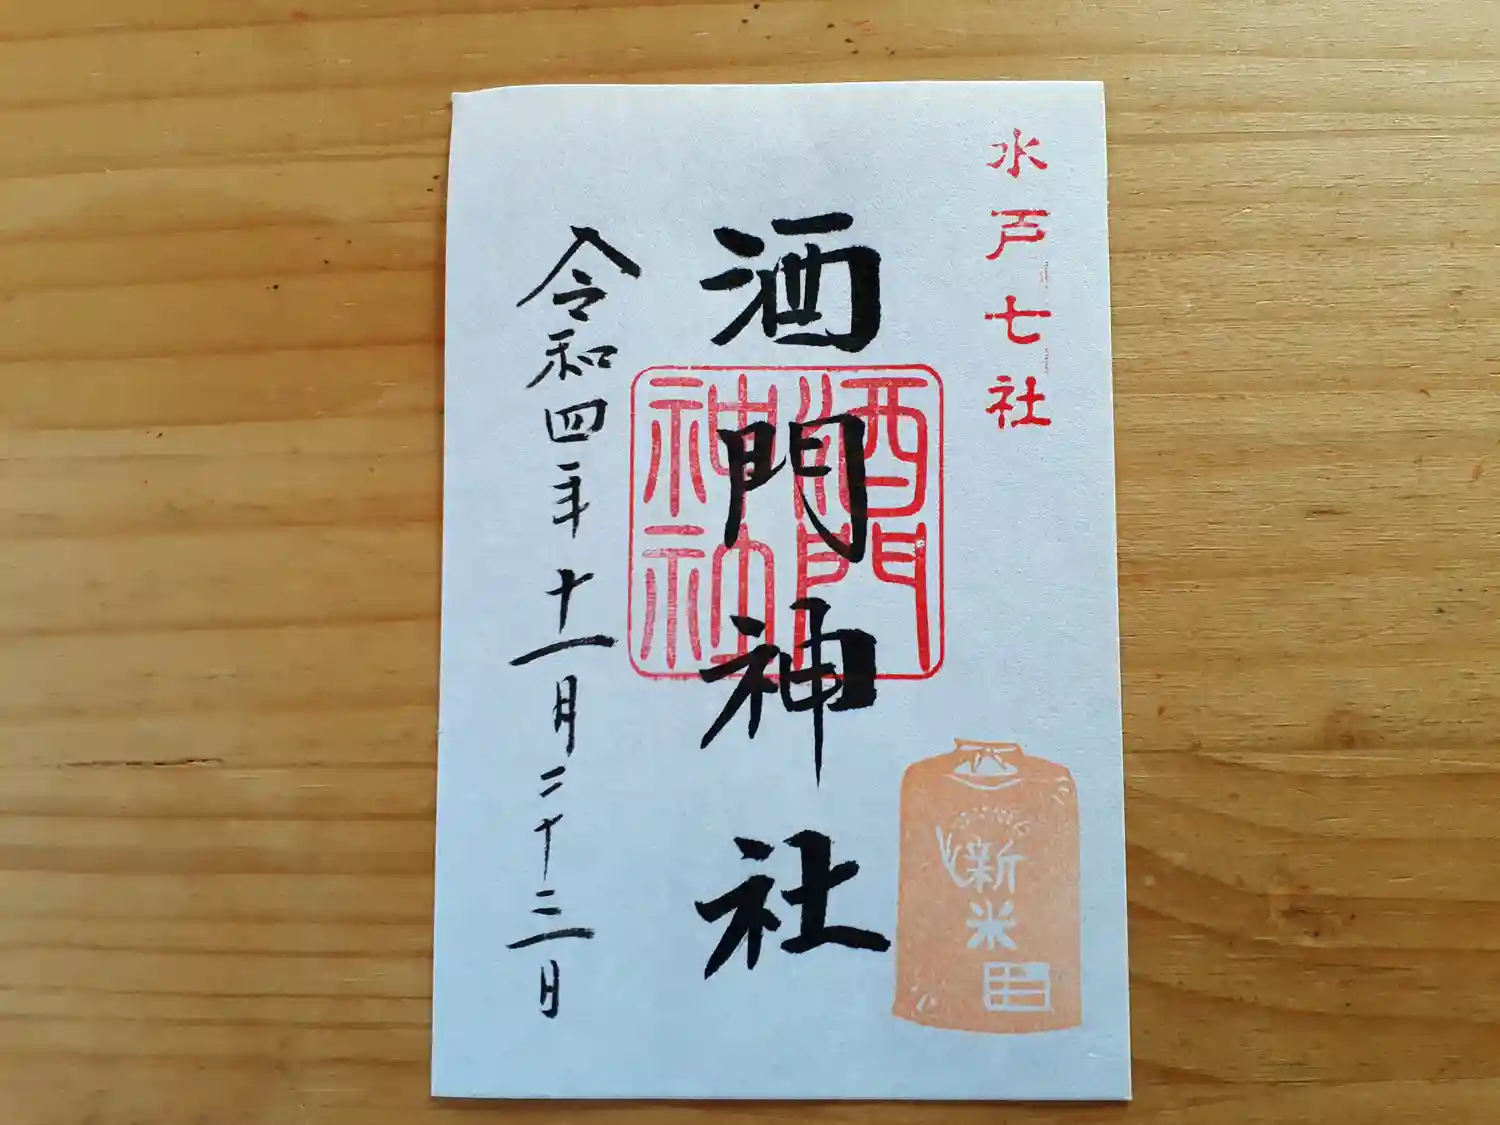 水戸七社
酒門神社
酒門
神社
令和四年十一月二十三日
新米